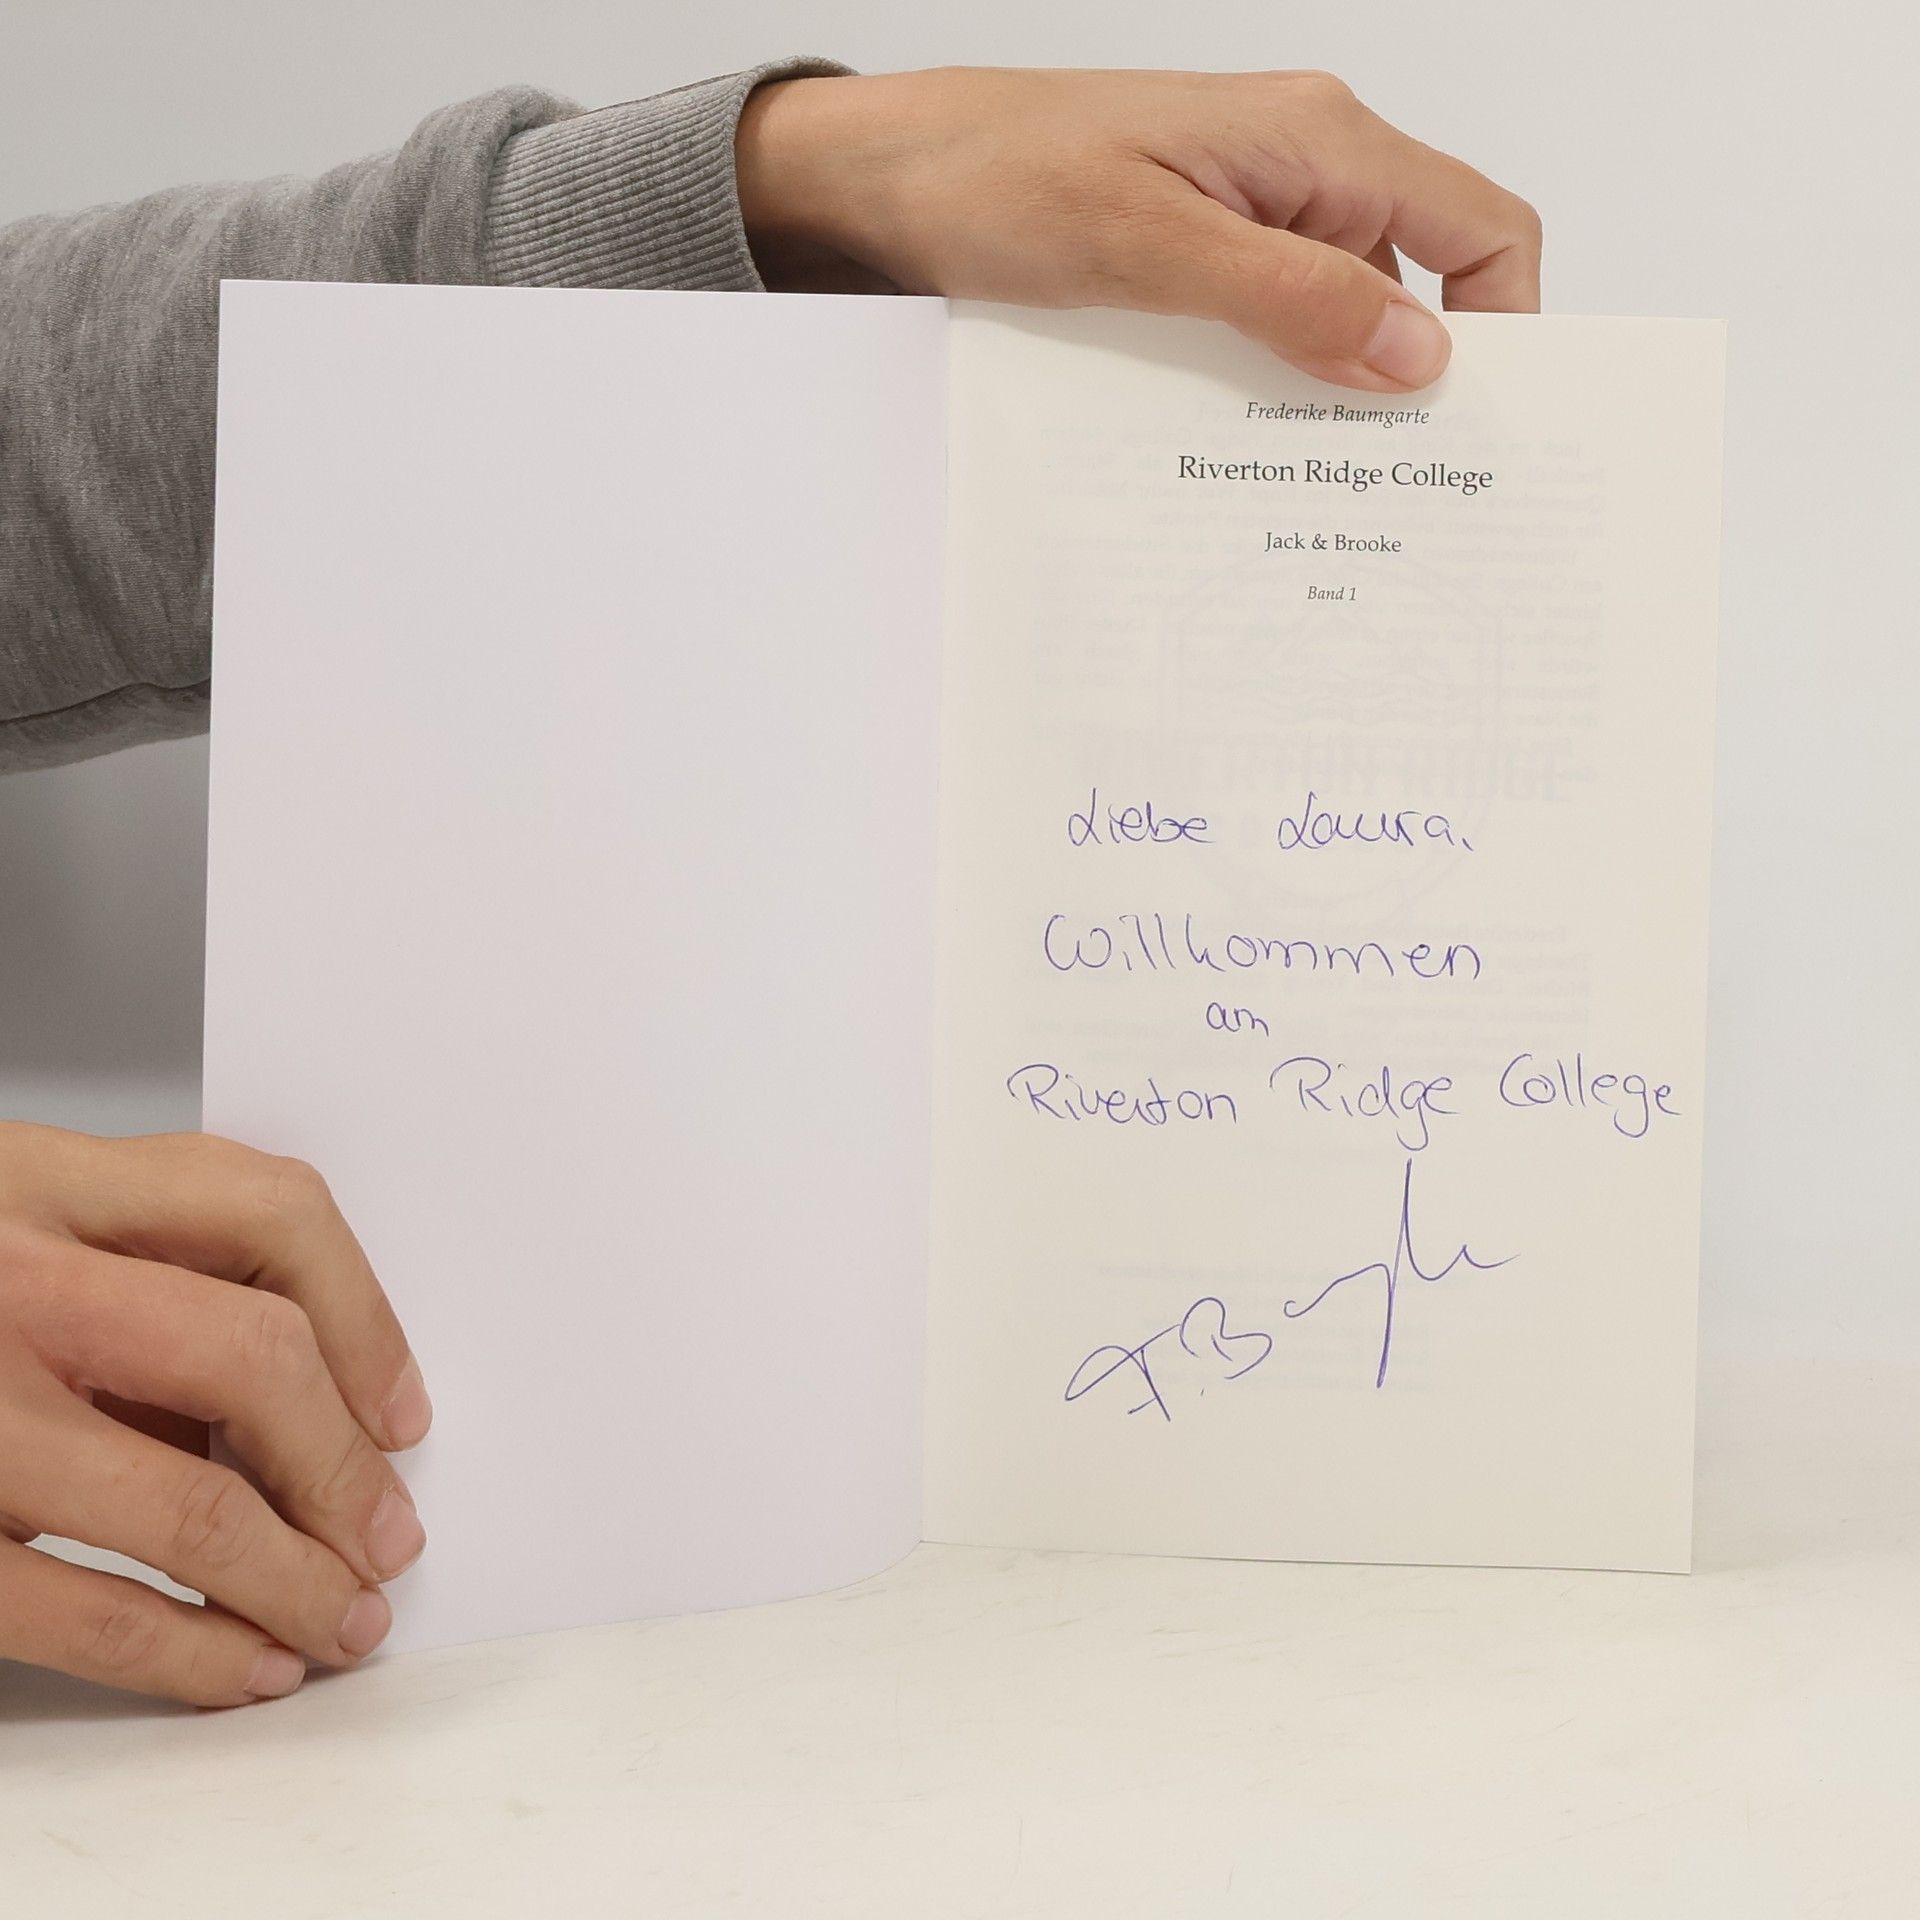 Frederike Baumgarte
Riverton Ridge College
Jack & Brooke
Band 1
Liebe Laura,
Willkommen
am
Riverton Ridge College
F.B